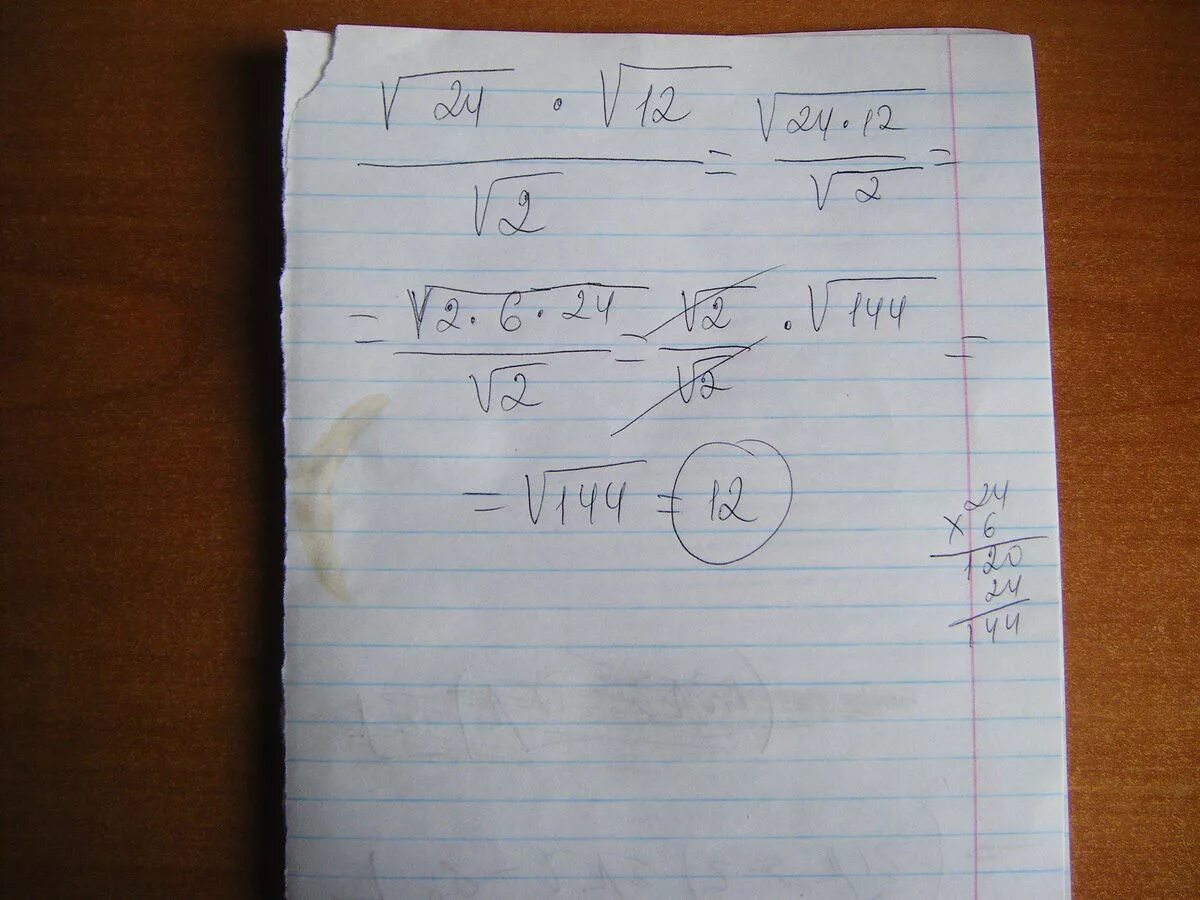 √24 · √12 / √2 = √24·12 / √2 =
= √2·6·24 / √2 = √2 / √2 · √144 =
= √144 = 12
24
× 6
120
24
144